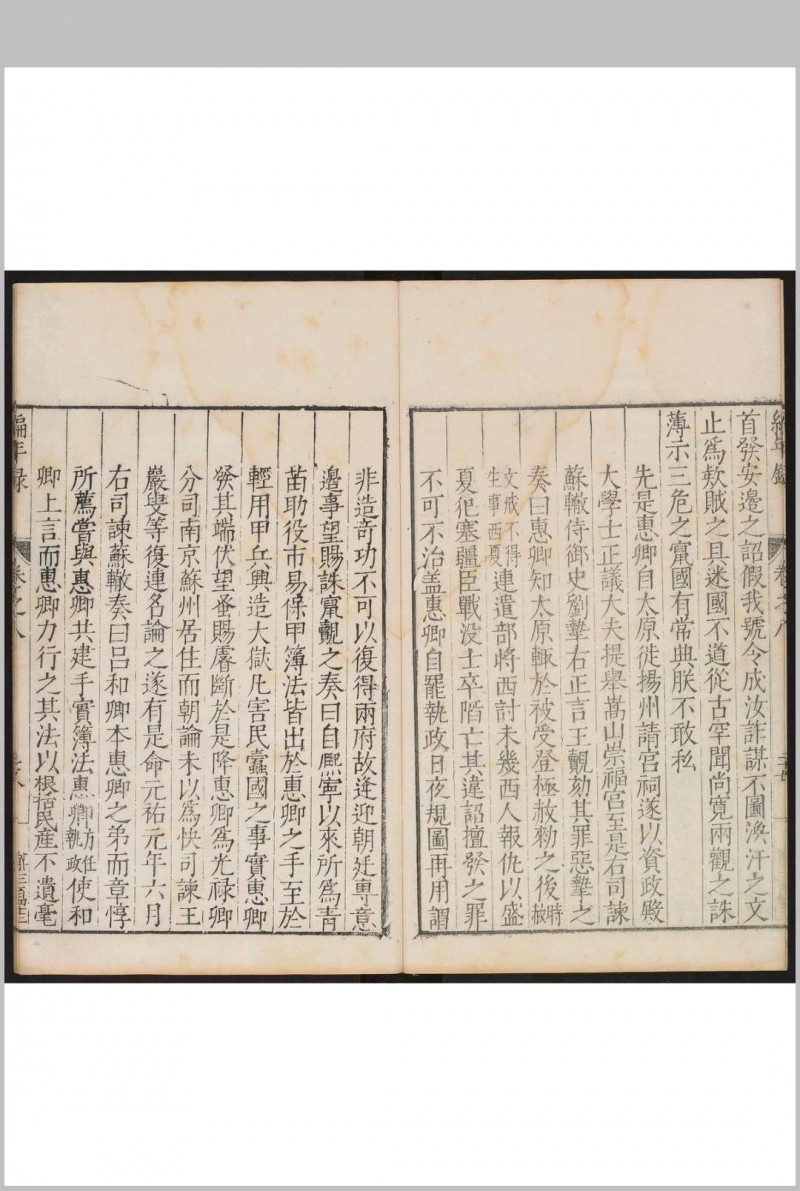 首發安邊之詔假我號令成汝詐謀不圖渙汗之文
止爲欵賊之具迷國不道從古罕聞尚寬兩觀之誅
薄示三危之竄國有常典朕不敢私
先是惠卿自太原徙揚州請宮祠遂以資政殿
大學士正議大夫提舉嵩山崇福宮至是右司諫
蘇轍侍御史劉摯右正言王覿劾其罪惡摯之
奏曰惠卿知太原輒於被受登極赦勑之後時赦
文戒不得生事西夏連遣部將西討未幾西人報仇以盛
夏犯塞疆臣戰没士卒陷亡其違詔擅發之罪
不可不治盖惠卿自罷執政日夜規圖再用謂
非造奇功不可以復得兩府故逢迎朝廷専意
邊事望賜誅竄覿之奏曰自熈寧以來所爲青
苗助役市易保甲簿法皆出於惠卿之手至於
輕用甲兵興造大獄凡害民蠧國之事實惠卿
發其端伏望蚤賜睿斷於是降惠卿爲光禄卿
分司南京蘇州居住而朝論未以爲快司諫王
巖叟等復連名論之遂有是命元祐元年六月
右司諫蘇轍奏曰吕和卿本惠卿之弟而章惇
所薦嘗與惠卿共建手實簿法惠卿方任執政使和
卿上言而惠卿力行之其法以根括民産不遺毫
編年録 卷之八